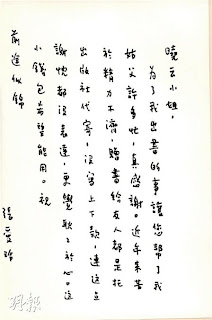 曉云小姐，
為了我出書的事讓您幫了我
姑父許多忙，真感謝。近年來苦
於精力不濟，贈書給友人都是托
出版社代寄，沒寫上下款，連這点
謝忱都沒表達，更覺歉歉於心。這
小錢包希望能用。祝
前途似錦
張愛玲